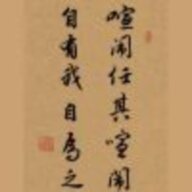 喧闹任其喧闹
自有我自为之